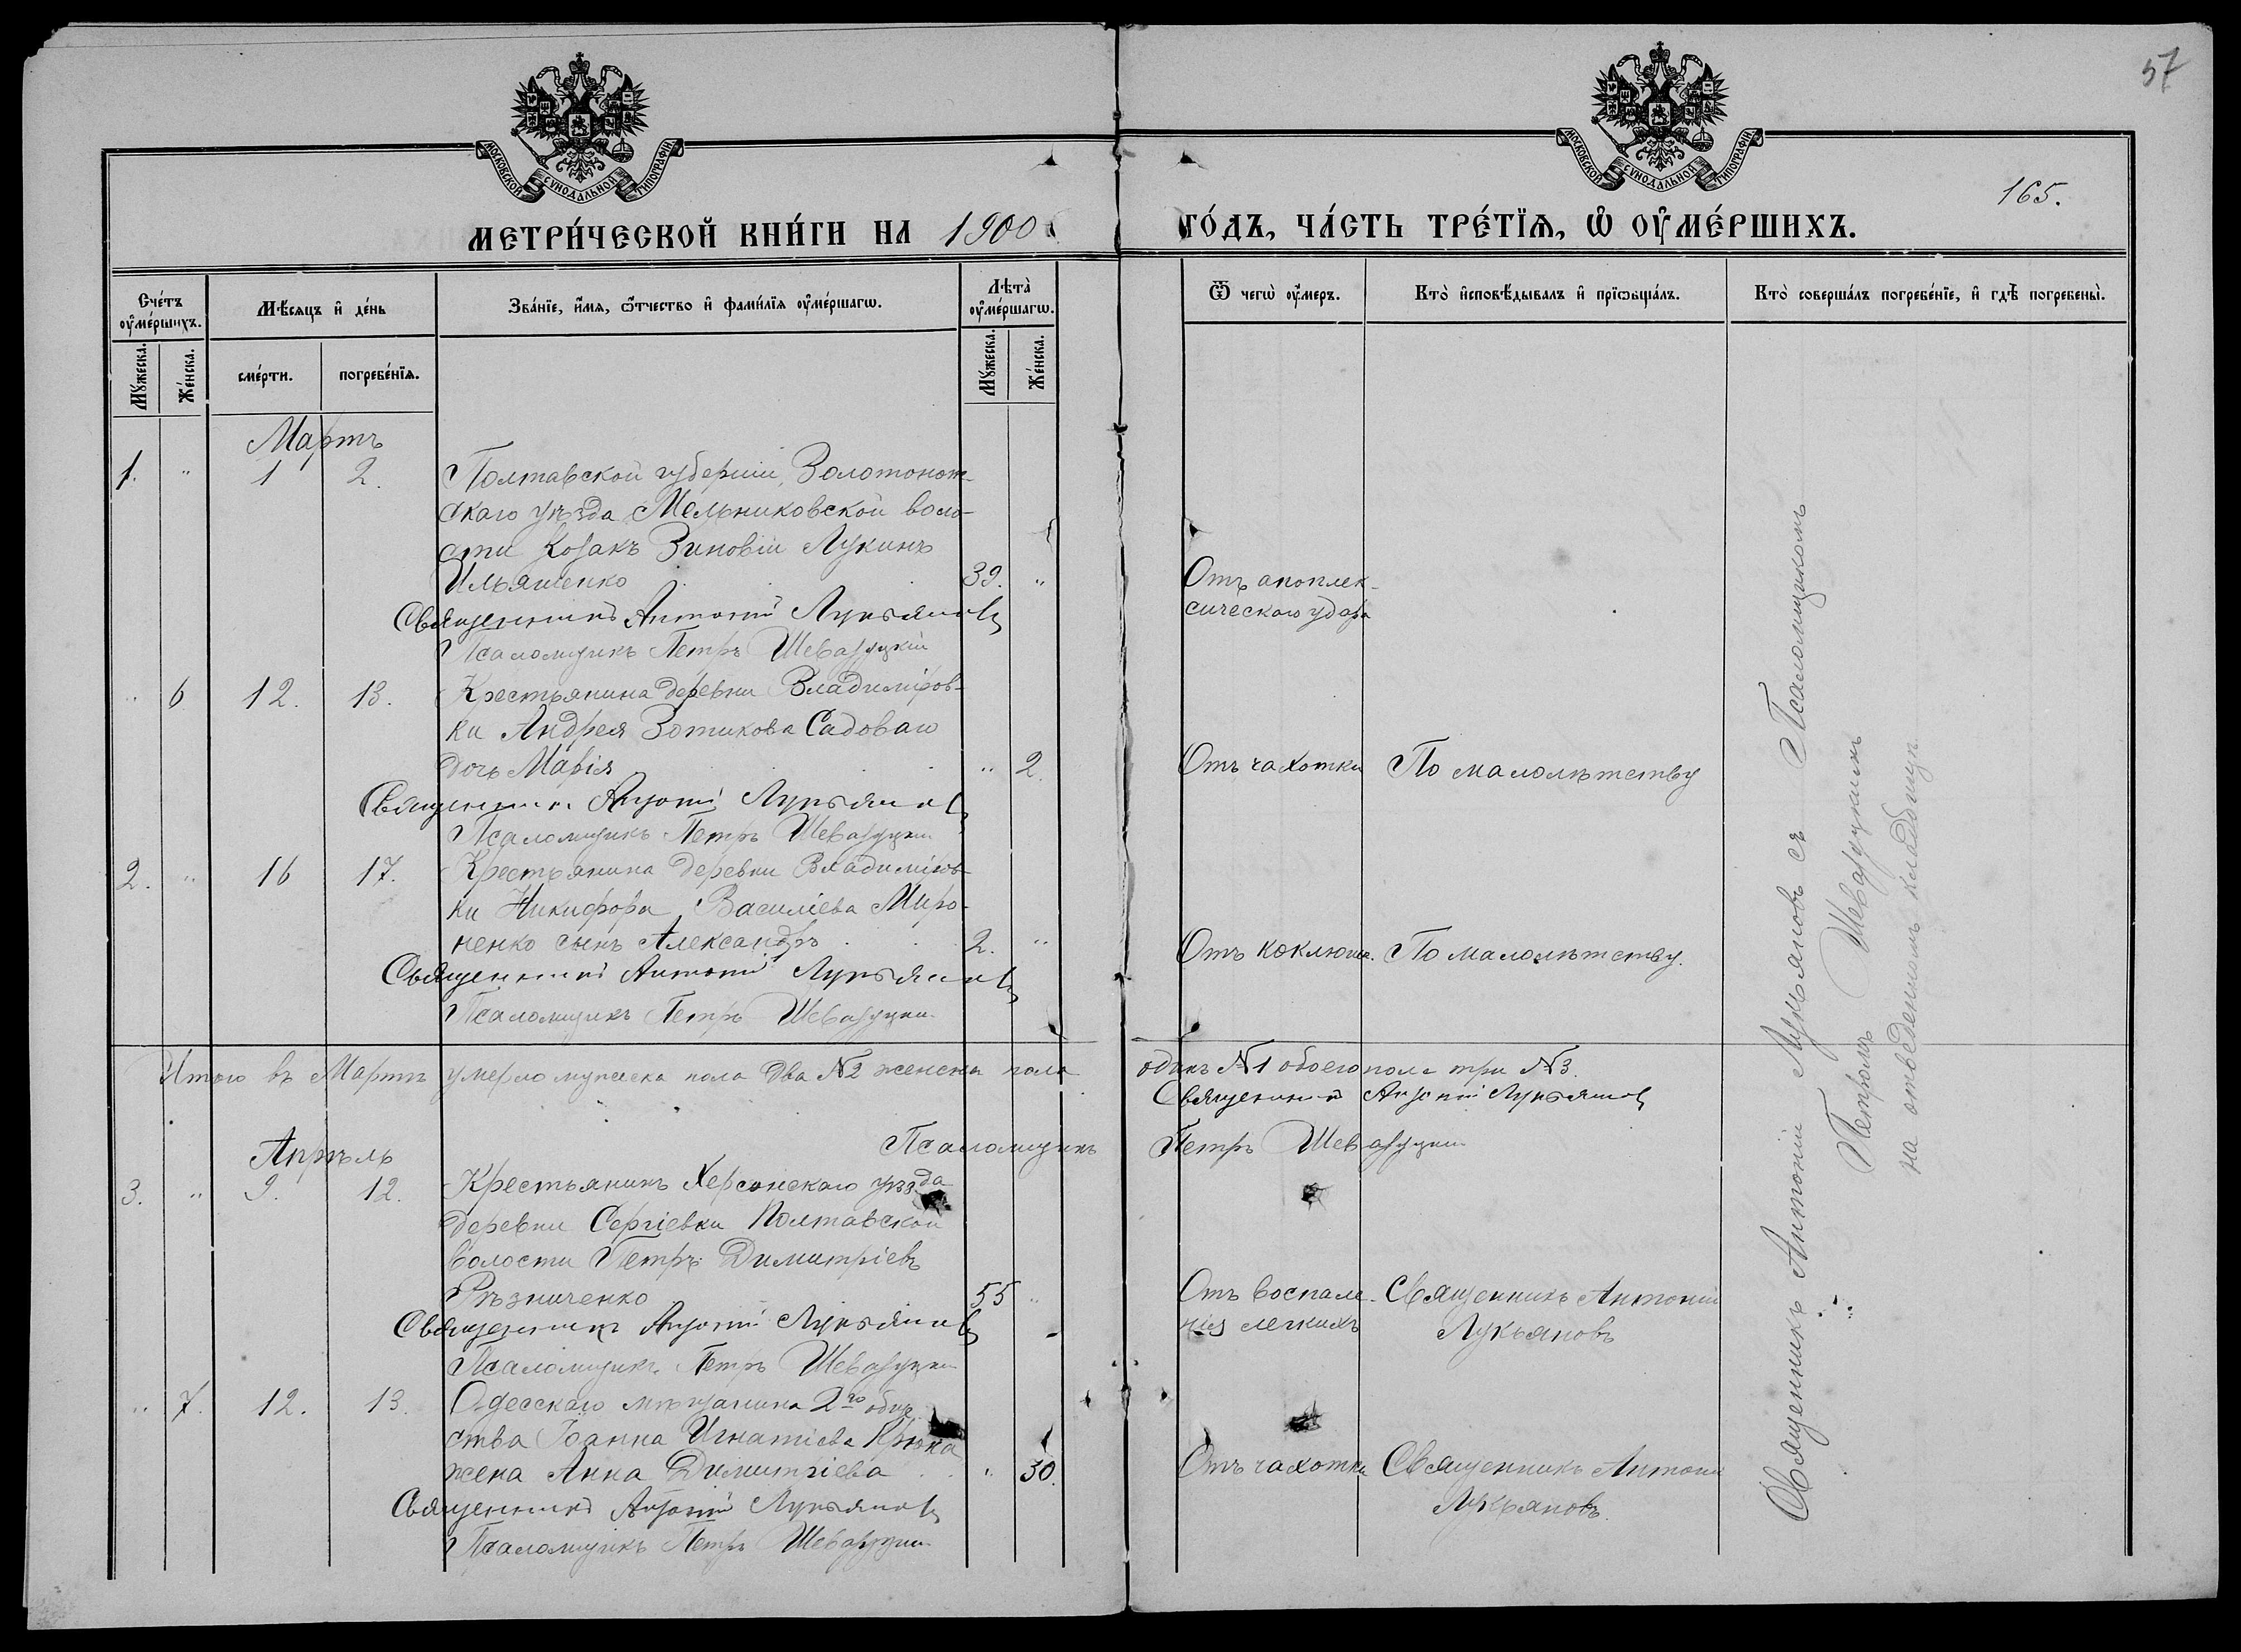 57
МОСКОВСКОЙ СѴНОДАЛЬНОЙ ТИПОГРАФІИ
МОСКОВСКОЙ СѴНОДАЛЬНОЙ ТИПОГРАФІИ
165.
МЕТРИ́ЧЕСКОЙ КНИ́ГИ НА 1900 ГО́ДЪ, ЧА́СТЬ ТРЕ́ТЇѦ, Ѡ҆ ОУ҆МЕ́РШИХЪ.
Сче́тъ оу҆ме́ршихъ.
Мѣ́сяцъ и҆ де́нь
Зва́нїе, и҆́мѧ, ѻ҆́тчество и҆ фами́лїѧ оу҆ме́ршагѡ.
Лѣта̀ оу҆ме́ршагѡ.
Ѿ чегѡ̀ оу҆́меръ.
Кто̀ и҆сповѣ́дывалъ и҆ прїѡбща́лъ.
Кто̀ соверша́лъ погребе́нїе, и҆ гдѣ̀ погребены̀.
Мꙋ́жеска.
Же́нска.
сме́рти.
погребе́нїѧ.
Мꙋ́жеска.
Же́нска.
Мартъ
1. " 1 2. Полтавской губерніи, Золотонож-
скаго уѣзда Мельниковской воло-
сти Козакъ Зиновій Лукинъ
Ильяшенко 39. " Отъ апоплек-
сическаго удара
Священникъ Антоній Лукьяновъ
Псаломщикъ Петръ
" 6 12. 13. Крестьянина деревни Владиміров-
ки Андрея Зотикова Садоваго
дочь Марія " 2. Отъ чахотки По малолѣтству
Священникъ Антоній Лукьяновъ
Псаломщикъ Петръ
2. " 16 17. Крестьянина деревни Владиміров-
ки Никифора Василіева Миро-
ненко сынъ Александръ 2. " Отъ коклюша. По малолѣтству.
Священникъ Антоній Лукьяновъ
Псаломщикъ Петръ
Итого въ Мартѣ умерло мужеска пола два №2 женска пола одинъ №1 обоего пола три №3.
Священникъ Антоній Лукьяновъ
Псаломщикъ Петръ
Апрѣль
3. " 9. 12. Крестьянинъ Херсонскаго уѣзда
деревни Сергіевки Полтавской
волости Петръ Димитріевъ
Рѣзниченко 55 " Отъ воспале- Священникъ Антоній
нія легкихъ Лукьяновъ
Священникъ Антоній Лукьяновъ
Псаломщикъ Петръ
" 7. 12. 13. Одесскаго мѣщанина 2го обще
ства Іоанна Игнатіева
жена Анна Димитріева " 30. Отъ чахотки Священникъ Антоній
Лукьяновъ.
Священникъ Антоній Лукьяновъ
Псаломщикъ Петръ
Священникъ Антоній Лукьяновъ съ Псаломщикомъ
Петромъ
на отведенномъ кладбищѣ.